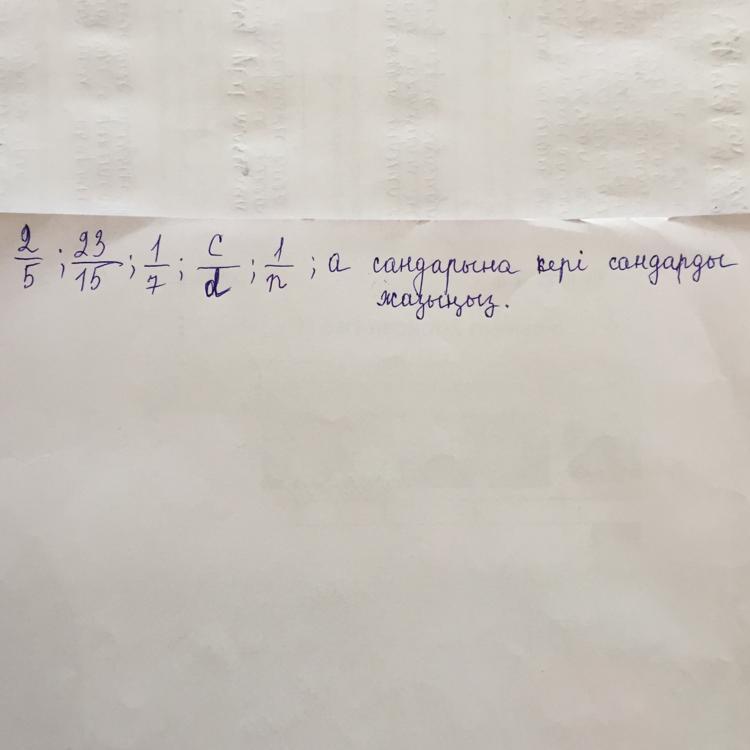 2/5 ; 23/15 ; 1/7 ; c/d ; 1/n ; а сандарына кері сандарды
жазыңыз.